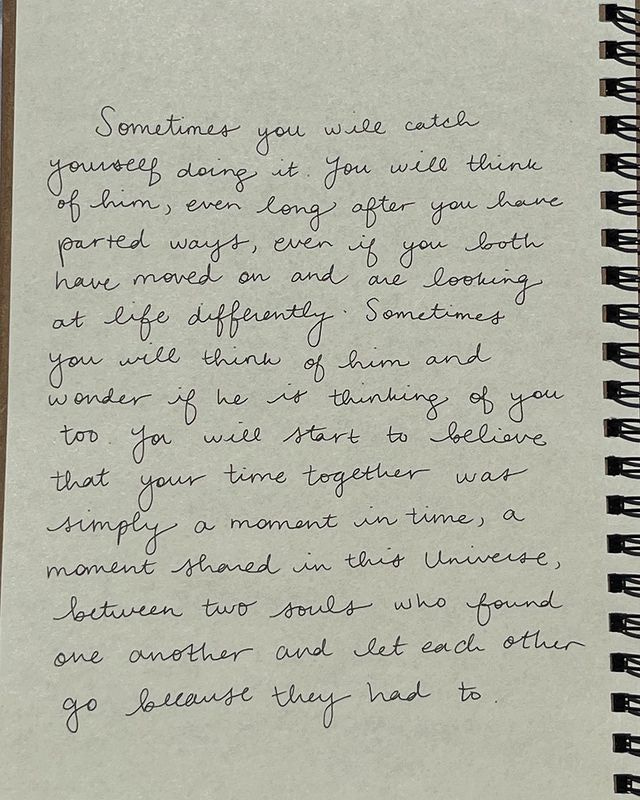 Sometimes you will catch
yourself doing it. You will think
of him, even long after you have
parted ways, even if you both
have moved on and are looking
at life differently. Sometimes
you will think of him and
wonder if he is thinking of you
too. You will start to believe
that your time together was
simply a moment in time, a
moment shared in this Universe,
between two souls who found
one another and let each other
go because they had to.